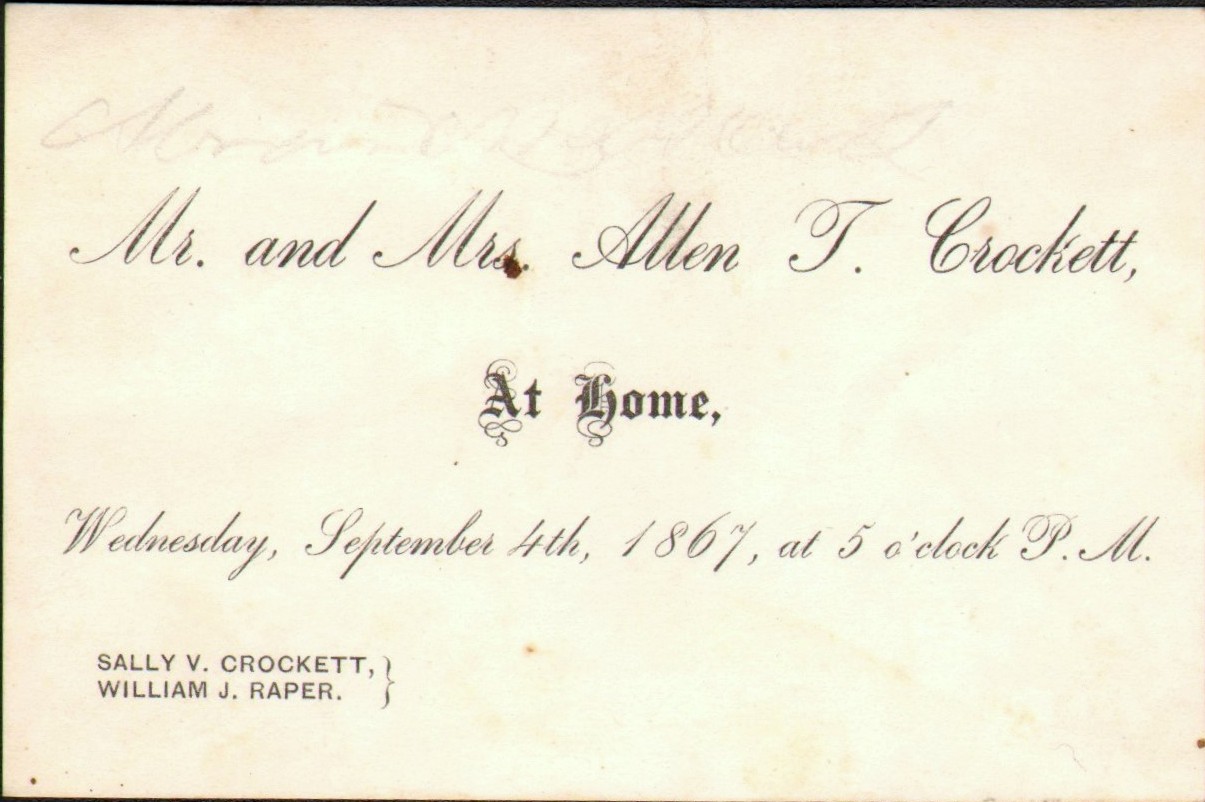 Mr. and Mrs. Allen T. Crockett,
At Home,
Wednesday, September 4th, 1867, at 5 o'clock P. M.
SALLY V. CROCKETT,
WILLIAM J. RAPER.